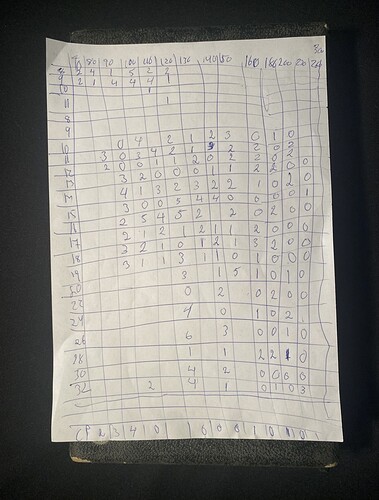 70 80 90 100 110 120 130 140 50 160 180 200 20 24
8 2 4 1 5 2 2
9 2 1 4 4 4 1
10 1
11 1
8
9
10 0 4 2 1 2 3 0 1 0
11 3 0 3 4 2 1 2 2 0 2
12 2 0 0 1 1 2 0 2 2 2 0 0
13 3 2 0 0 0 1 1
14 4 1 3 2 3 2 2 1 0 2 0
15 3 0 0 5 4 4 0 0 0 0 1
2 5 4 5 2 2 0 2 0 0
17 2 1 2 1 2 1 1 2 0 0 0
18 3 2 1 0 1 2 1 3 2 0 0
3 1 1 3 1 1 0 1 0 0 0
19 3 1 5 1 0 1 0
20 0 2 0 2 0 0
22 4 0 1 0 2
24
26 6 3 0 0 1 0
28 1 1 2 2 1 0
30 4 2 0 0 0 0
32 2 4 1 0 1 0 3
2 3 4 0 6 0 0 1 0 1 0